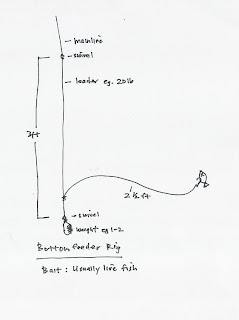 mainline
swivel
leader eg. 20lb
3ft
2 1/2 ft
swivel
weight eg 1-2
Bottom Feeder Rig
Bait : Usually live fish